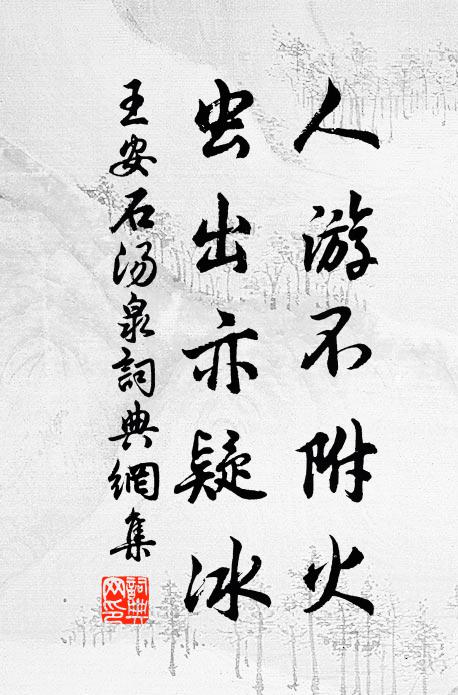 人游不附火
虫出亦疑冰
王安石汤泉詞典網集
詞典